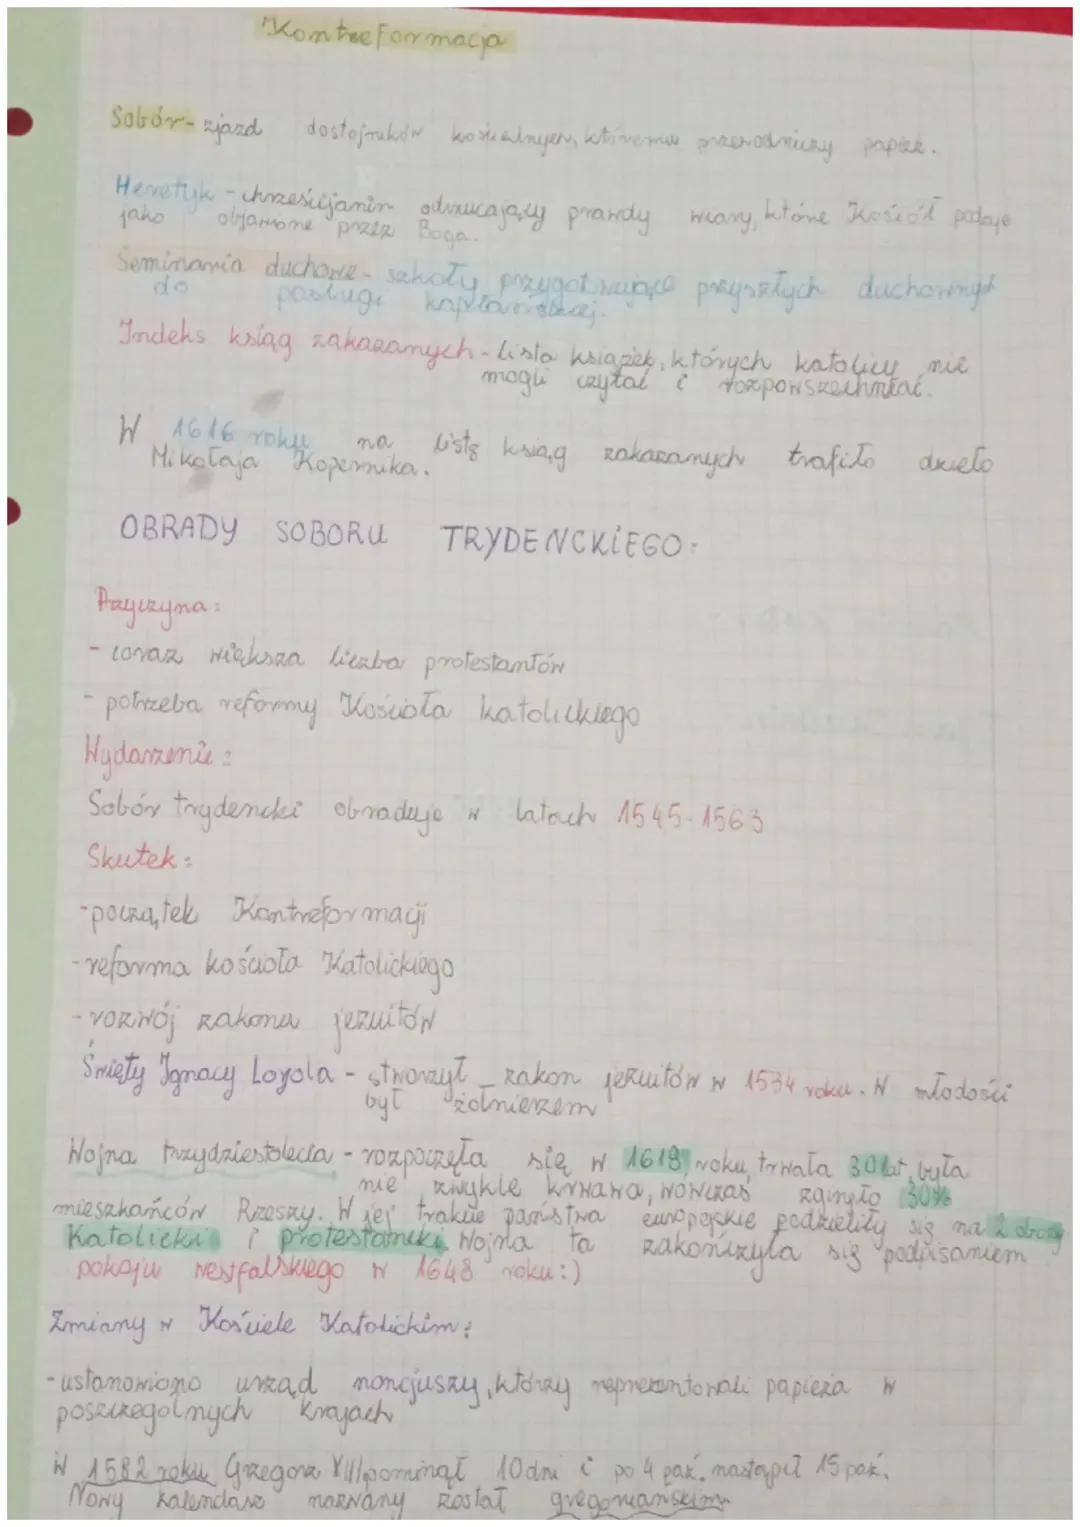 Kontreformacja
Sobór - zjazd dostojników kościelnych, któremu przewodniczy papież.
Heretyk - chrześcijanin odrzucający prawdy wiary, które Kościół podaje
jako objawione przez Boga.
Seminaria duchowe - szkoły przygotowujące przyszłych duchownych
do posługi kapłańskiej.
Indeks ksiąg zakazanych - lista książek, których katolicy nie
mogli czytać i rozpowszechniać.
W 1616 roku na listę ksiąg zakazanych trafiło dzieło
Mikołaja Kopernika.
OBRADY SOBORU TRYDENCKIEGO:
Przyczyna:
- coraz większa liczba protestantów
- potrzeba reformy Kościoła katolickiego
Wydarzenie:
Sobór trydencki obraduje w latach 1545-1563
Skutek:
- początek Kontreformacji
- reforma kościoła Katolickiego
- rozwój zakonu jezuitów
Święty Ignacy Loyola - stworzył zakon jezuitów w 1534 roku. W młodości
był żołnierzem
Wojna trzydziestolecia - rozpoczęła się w 1618 roku, trwała 30 lat, była
nie zwykle krwawa, wówczas zginęło 30%
mieszkańców Rzeszy. W jej trakcie państwa europejskie podzieliły się na 2 obozy
Katolicki i protestancki. Wojna ta zakończyła się podpisaniem
pokoju westfalskiego w 1648 roku :)
Zmiany w Kościele Katolickim:
- ustanowiono urząd noncjuszy, którzy reprezentowali papieża w
poszczególnych krajach
W 1582 roku Grzegorz XIII pominął 10 dni i po 4 paź. nastąpił 15 paź.
Nowy kalendarz nazwany został gregoriańskim